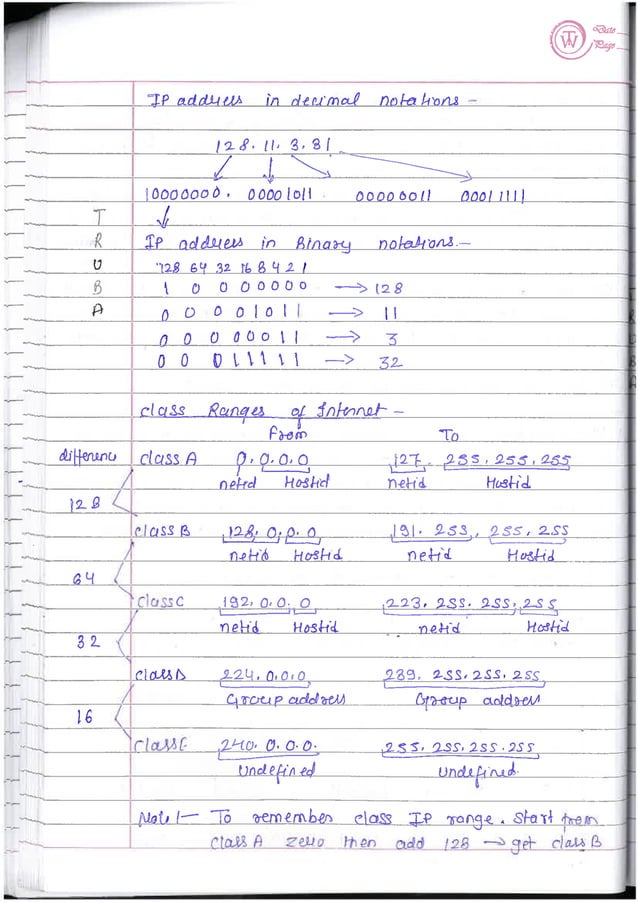 TW
Date
Page
IP address in decimal notations -
128. 11. 3. 31
10000000. 00001011 00000011 00011111
IP address in Binary notations. -
128 64 32 16 8 4 2 1
1 0 0 0 0 0 0 0 → 128
0 0 0 0 1 0 1 1 → 11
0 0 0 0 0 0 1 1 → 3
0 0 0 1 1 1 1 1 → 32
T
R
U
B
A
class Ranges of Internet -
From To
difference class A 0.0.0.0 127. 255. 255. 255
netid Hostid netid Hostid
128
class B 128. 0. 0. 0 191. 253. 255. 255
netid Hostid netid Hostid
64
class C 192. 0. 0. 0 223. 255. 255. 255
netid Hostid netid Hostid
32
class D 224. 0. 0. 0 239. 255. 255. 255
Group address Group address
16
class E 240. 0. 0. 0. 255. 255. 255. 255
Undefined Undefined.
Note 1 - To remember class IP range. start from
class A zero then add 128 → get class B